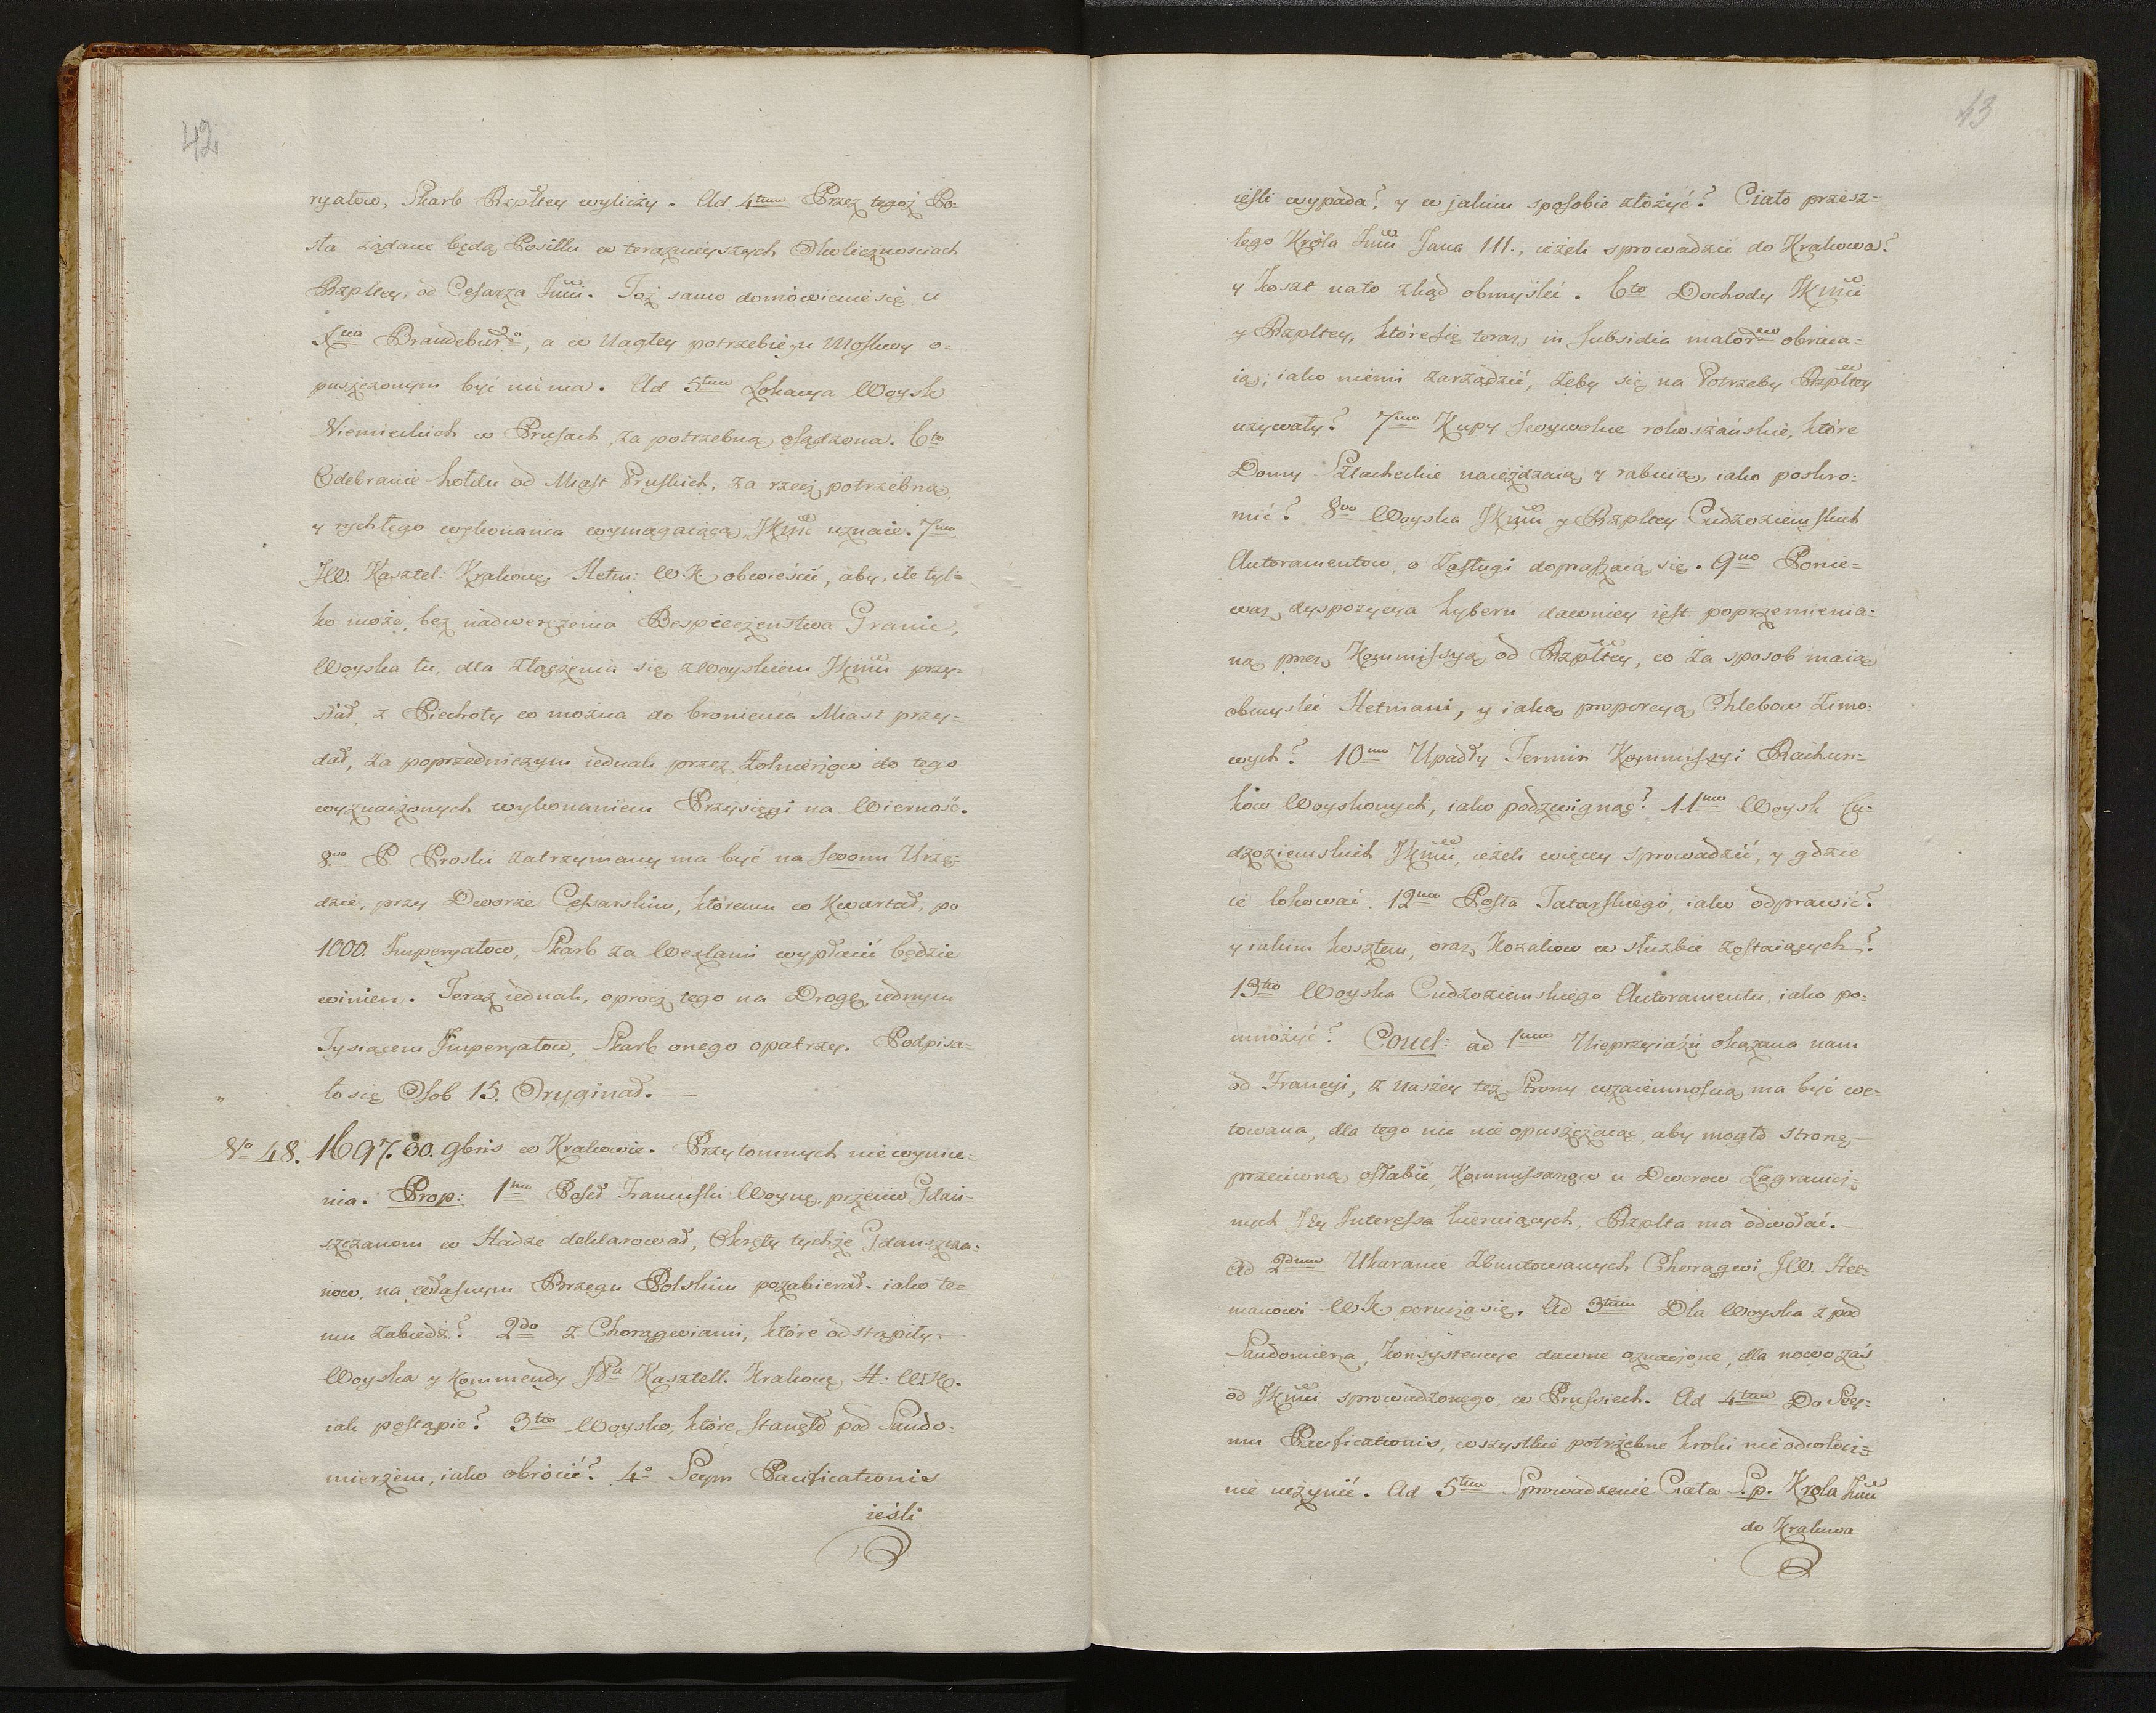 42
ryałow, Skarb Rzpltey wyliczy. Ad 4tum Przez tegoż Po-
sła żądane będą Posiłki w teraznieyszych Okolicznosciach
Rzpltey, od Cesarza Jmci. Toż samo domówienie się u
Xcia Brandebur:o, a w Nagłey potrzebie, y u Moskwy o-
puszczonym być nie ma. Ad 5tum Lokacya Woysk
Niemieckich w Prusach, za potrzebną osądzona. 6to
Odebranie hołdu od Miast Pruskich, za rzecz potrzebną,
y rychłego wykonania wymagaiącą, JKmć uznaie. 7mo
JW. Kasztel: Krakows: Hetm: W.K. obwieścić, aby, ile tyl-
ko może, bez nadwerężenia Bespieczenstwa Granic,
Woyska tu, dla złączenia się z Woyskiem JKmci przy-
słał, z Piechoty co można do bronienia Miast przy-
dał, za poprzedniczym iednak przez Żołnierzow do tego
wyznaczonych wykonaniem Przysięgi na Wierność.
8vo P. Proski zatrzymany ma być na swoim Urzę-
dzie, przy Dworze Cessarskim, któremu co Kwartał, po
1000. Imperyałow, Skarb za Wexlami wypłacić będzie
winien. Teraz iednak, oprocz tego na Drogę, iednym
Tysiącem Imperyałow, Skarb onego opatrzy. Podpisa-
ło się Osob 15. Oryginał. —
No 48. 1697. 30. 9bris w Krakowie. Przytomnych nie wymie-
nia. Prop: 1mo Poseł Francuski Woynę, przeciw Gdań-
szczanom w Hadze deklarował, Okręty tychże Gdanszcza-
now, na własnym Brzegu Polskim pozabierał. iako te-
mu zabiedz? 2do z Chorągwiami, które odstąpiły
Woyska y Kommendy JPa Kasztell. Krakows H: WK.
iak postąpić? 3tio Woysko, które stanęło pod Sando-
mierzem, iako obrócić? 4o Seym Pacificationis
ieśli
43
ieśli wypada? y w jakim sposobie złożyć? Ciało przesz-
łego Króla Jmci Jana III., ieżeli sprowadzić do Krakowa?
y koszt na to zkąd obmyślić. 6to Dochody JKmci
y Rzpltey, które się teraz in subsidia malorum obraca-
ią; iako niemi zarządzić, żeby się na Potrzeby Rzpltey
używały? 7mo Kupy swywolne rokoszańskie, które
Domy Szlacheckie naieżdzaią y rabuią, iako poskro-
mić? 8vo Woyska JKmci y Rzpltey Cudzoziemskich
Autoramentow, o Zasługi dopraszaią się. 9no Ponie-
waz dyspozycya hybern dawniey iest poprzemienia-
na przez Kommissyą od Rzpltey, co za sposob maią
obmyslić Hetmani, y iaką proporcyą Chlebow Zimo-
wych? 10mo Upadły Termin Kommissyi Rachun-
ków Woyskowych, iako podzwignąć? 11mo Woysk Cu-
dzoziemskich JKmci, ieżeli więcey sprowadzić, y gdzie
ie lokować. 12mo Posła Tatarskiego, iako odprawić?
y iakim kosztem, oraz Kozakow w służbie zostaiących?
13tio Woyska Cudzoziemskiego Autoramentu, iako po-
mnożyć? Concl: ad 1mum Nieprzyiaźń okazana nam
od Francyi, z naszey też Strony wzaiemnoscią ma być we-
towana, dla tego nic nie opuszczaiąc, aby mogło stronę
przeciwną osłabić, Kommissarzow u Dworow Zagranicz-
nych Jey Interessa kieruiących, Rzplta ma odwołać. —
Ad 2dum Ukaranie Zbuntowanych Chorągwi JW. Het-
manowi WK. porucza się. Ad 3tium Dla Woyska z pod
Sandomierza, Konsystencye dawne oznaczone, dla nowo zaś
od JKmci sprowadzonego, w Prussiech. Ad 4tum Do Sey-
mu Pacificationis, wszystkie potrzebne kroki nieodwłocz-
nie uczynić. Ad 5tum Sprowadzenie Ciała S.p. Krola Jmci
do Krakowa